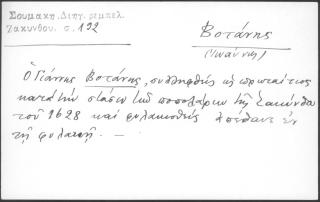 Σουμάκη. Διηγ. ρεμπελ.
Ζακύνθου. σ. 192
Βοτάνης
(Ιωάννης)
Ὁ Γιάννης Βοτάνης, συλληφθείς ὡς πρωταίτιος
κατά τήν στάσιν τῶν ποπολάρων τῆς Ζακύνθου
τοῦ 1628 καί φυλακισθείς ἀπέθανε ἐν
τῇ φυλακῇ. —